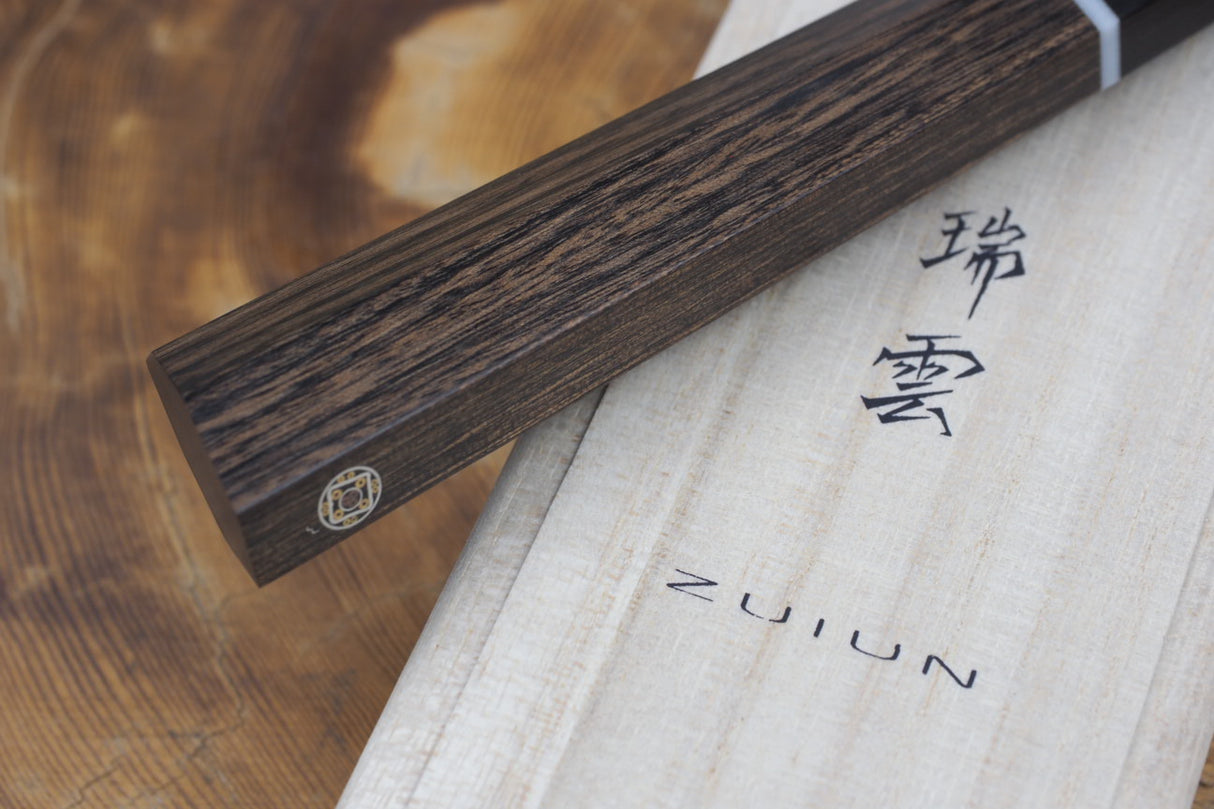 瑞雲
ZUIUN